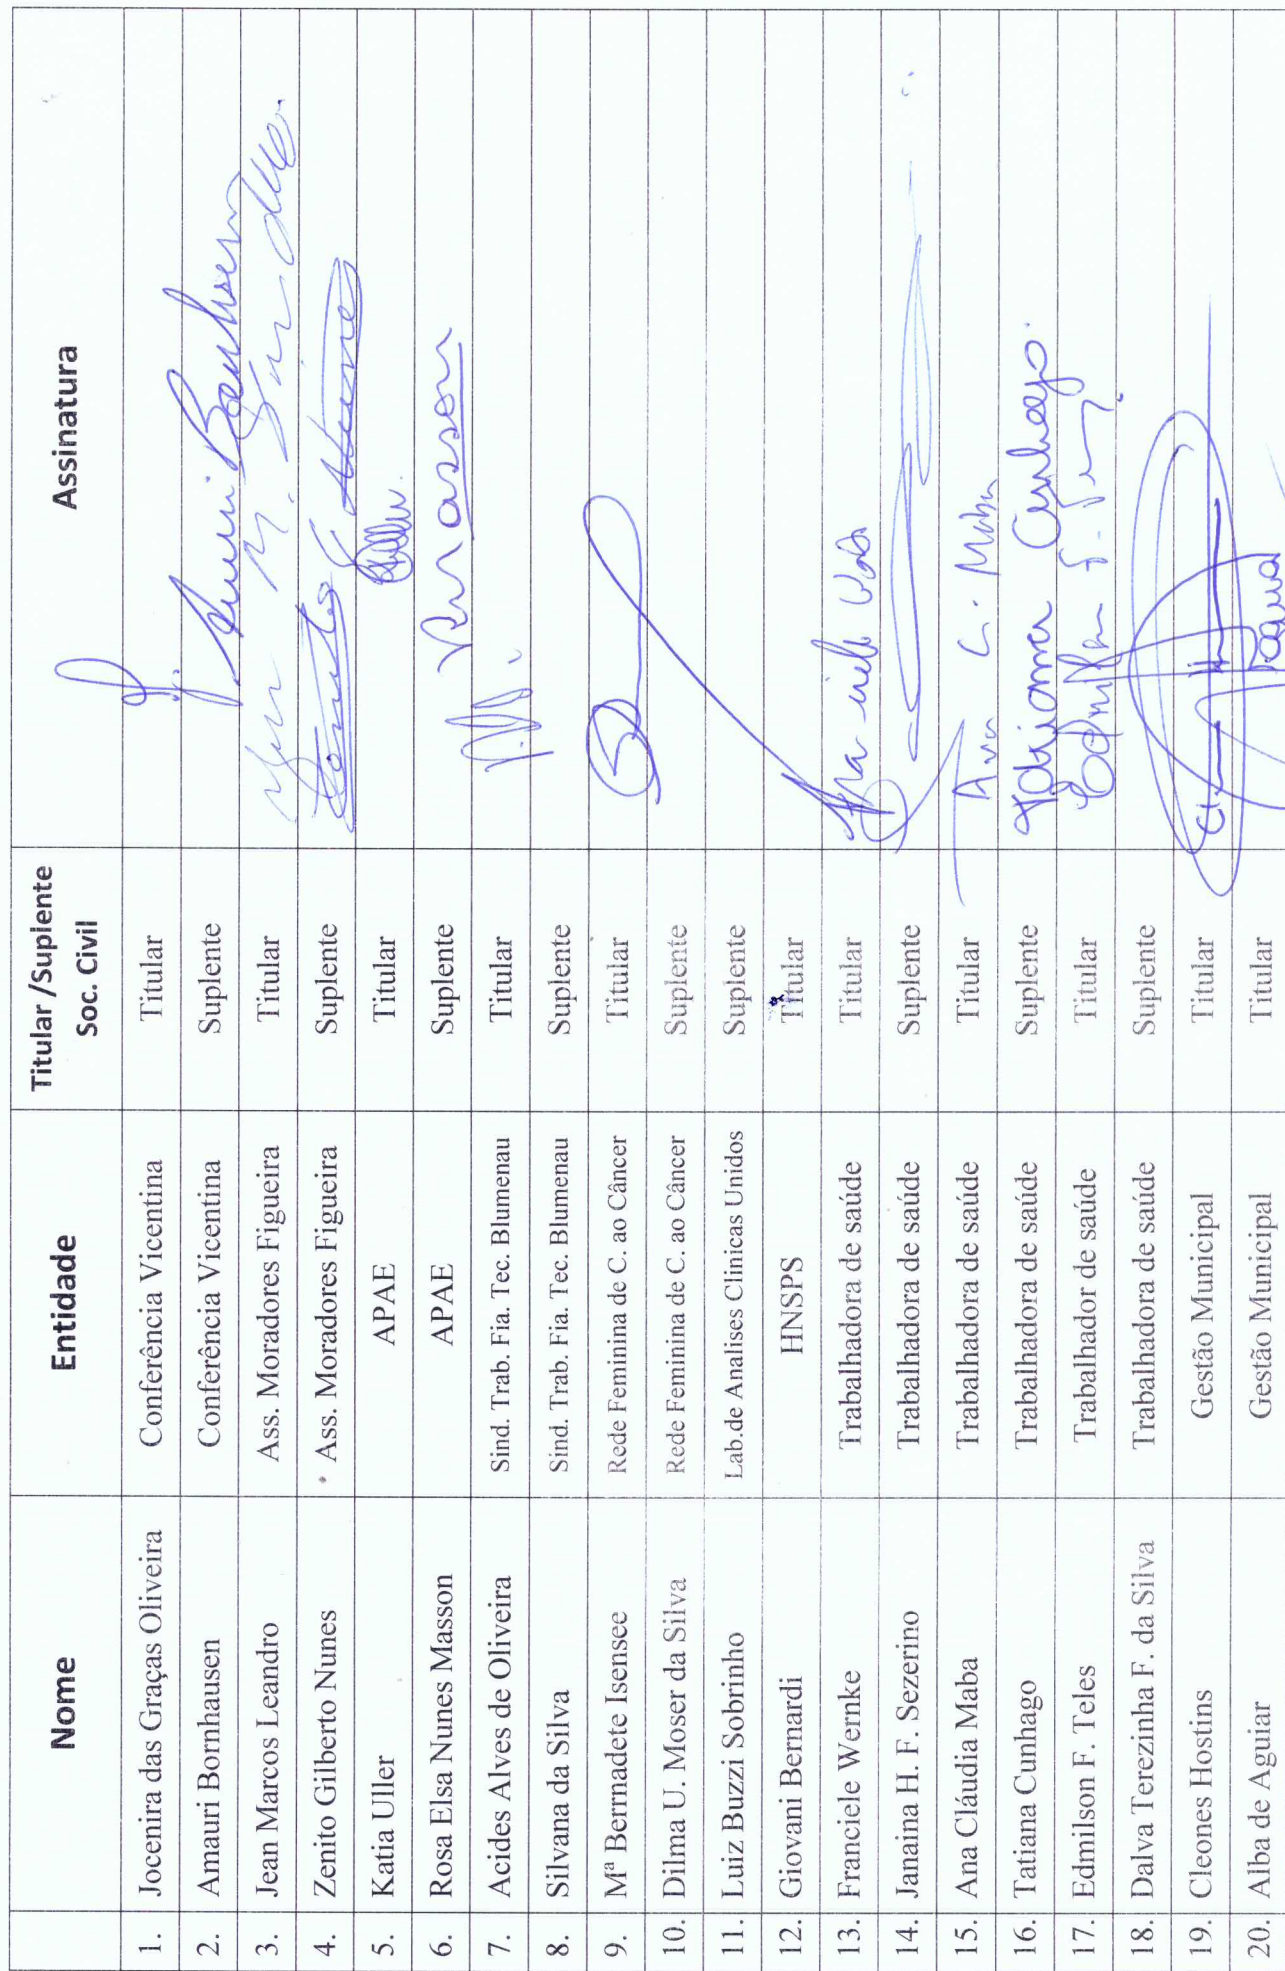 Nome Entidade Titular /Suplente Soc. Civil Assinatura
1. Jocenira das Graças Oliveira Conferência Vicentina Titular
2. Amauri Bornhausen Conferência Vicentina Suplente
3. Jean Marcos Leandro Ass. Moradores Figueira Titular
4. Zenito Gilberto Nunes Ass. Moradores Figueira Suplente
5. Katia Uller APAE Titular
6. Rosa Elsa Nunes Masson APAE Suplente
7. Acides Alves de Oliveira Sind. Trab. Fia. Tec. Blumenau Titular
8. Silvana da Silva Sind. Trab. Fia. Tec. Blumenau Suplente
9. Mª Bernadete Isensee Rede Feminina de C. ao Câncer Titular
10. Dilma U. Moser da Silva Rede Feminina de C. ao Câncer Suplente
11. Luiz Buzzi Sobrinho Lab.de Analises Clinicas Unidos Suplente
12. Giovani Bernardi HNSPS Titular
13. Franciele Wernke Trabalhadora de saúde Titular
14. Janaina H. F. Sezerino Trabalhadora de saúde Suplente
15. Ana Cláudia Maba Trabalhadora de saúde Titular Ana C. Maba
16. Tatiana Cunhago Trabalhadora de saúde Suplente Tatiana Cunhago
17. Edmilson F. Teles Trabalhador de saúde Titular
18. Dalva Terezinha F. da Silva Trabalhadora de saúde Suplente
19. Cleones Hostins Gestão Municipal Titular
20. Alba de Aguiar Gestão Municipal Titular